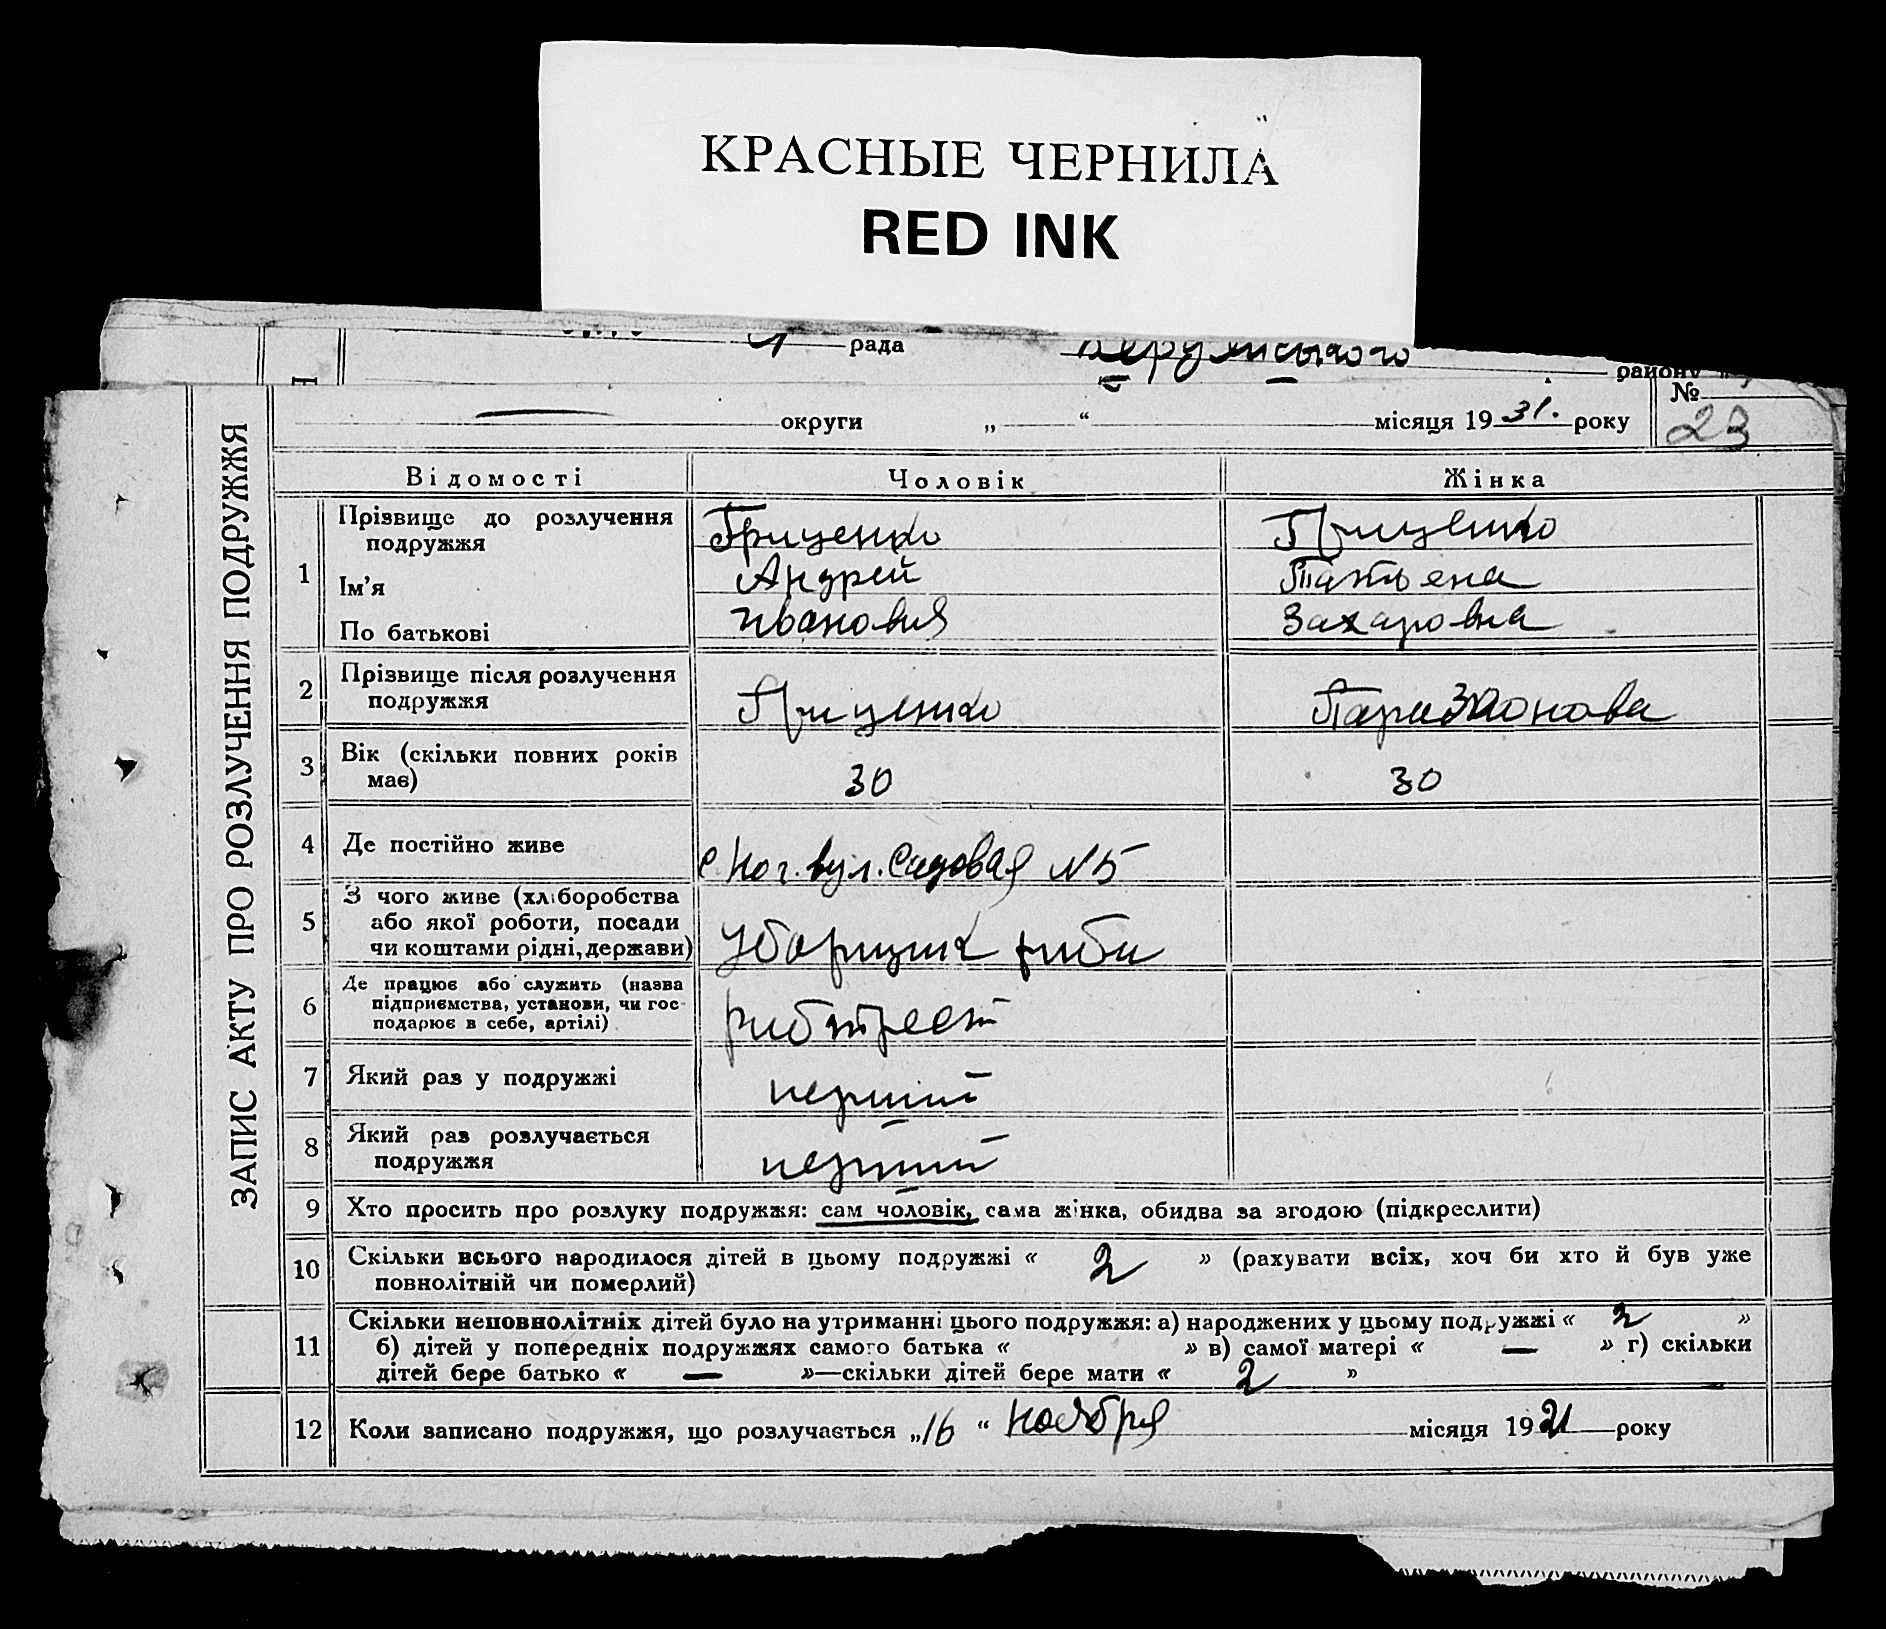 КРАСНЫЕ ЧЕРНИЛА
RED INK
рада
району
№
округи „ “ місяця 1931. року
23
ЗАПИС АКТУ ПРО РОЗЛУЧЕННЯ ПОДРУЖЖЯ
Відомості Чоловік Жінка
1 Прізвище до розлучення подружжя Гриценко Гриценко
Ім’я Андрей Татьена
По батькові Ивановия Захаровна
2 Прізвище після розлучення
подружжя Гриценко
3 Вік (скільки повних років
має) 30 30
4 Де постійно живе с. Ног. вул. Садовая №5
5 З чого живе (хліборобства
або якої роботи, посади
чи коштами рідні, держави) Уборщик риби
6 Де працює або служить (назва
підприємства, установи, чи гос-
подарює в себе, артілі) рибтрест
7 Який раз у подружжі перший
8 Який раз розлучається
подружжя перший
9 Хто просить про розлуку подружжя: сам чоловік, сама жінка, обидва за згодою (підкреслити)
10 Скільки всього народилося дітей в цьому подружжі « 2 » (рахувати всіх, хоч би хто й був уже
повнолітній чи померлий)
11 Скільки неповнолітніх дітей було на утриманні цього подружжя: а) народжених у цьому подружжі « 2 »
б) дітей у попередніх подружжях самого батька « » в) самої матері « — » г) скільки
дітей бере батько « — »—скільки дітей бере мати « 2 »
12 Коли записано подружжя, що розлучається „16 “ Ноября місяця 1921 року